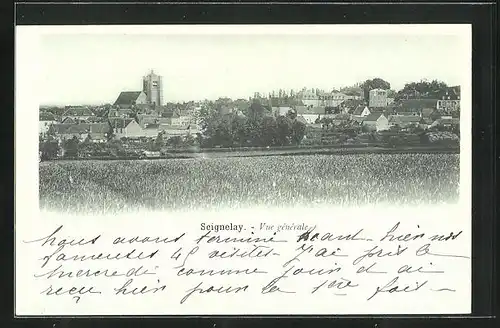 Seignelay. - Vue générale.
Nous avons terminé avant-hier nos
fameuses 48 visites - J'ai pris le
Mercredi comme jour et ai
reçu hier pour la 1ère fois -